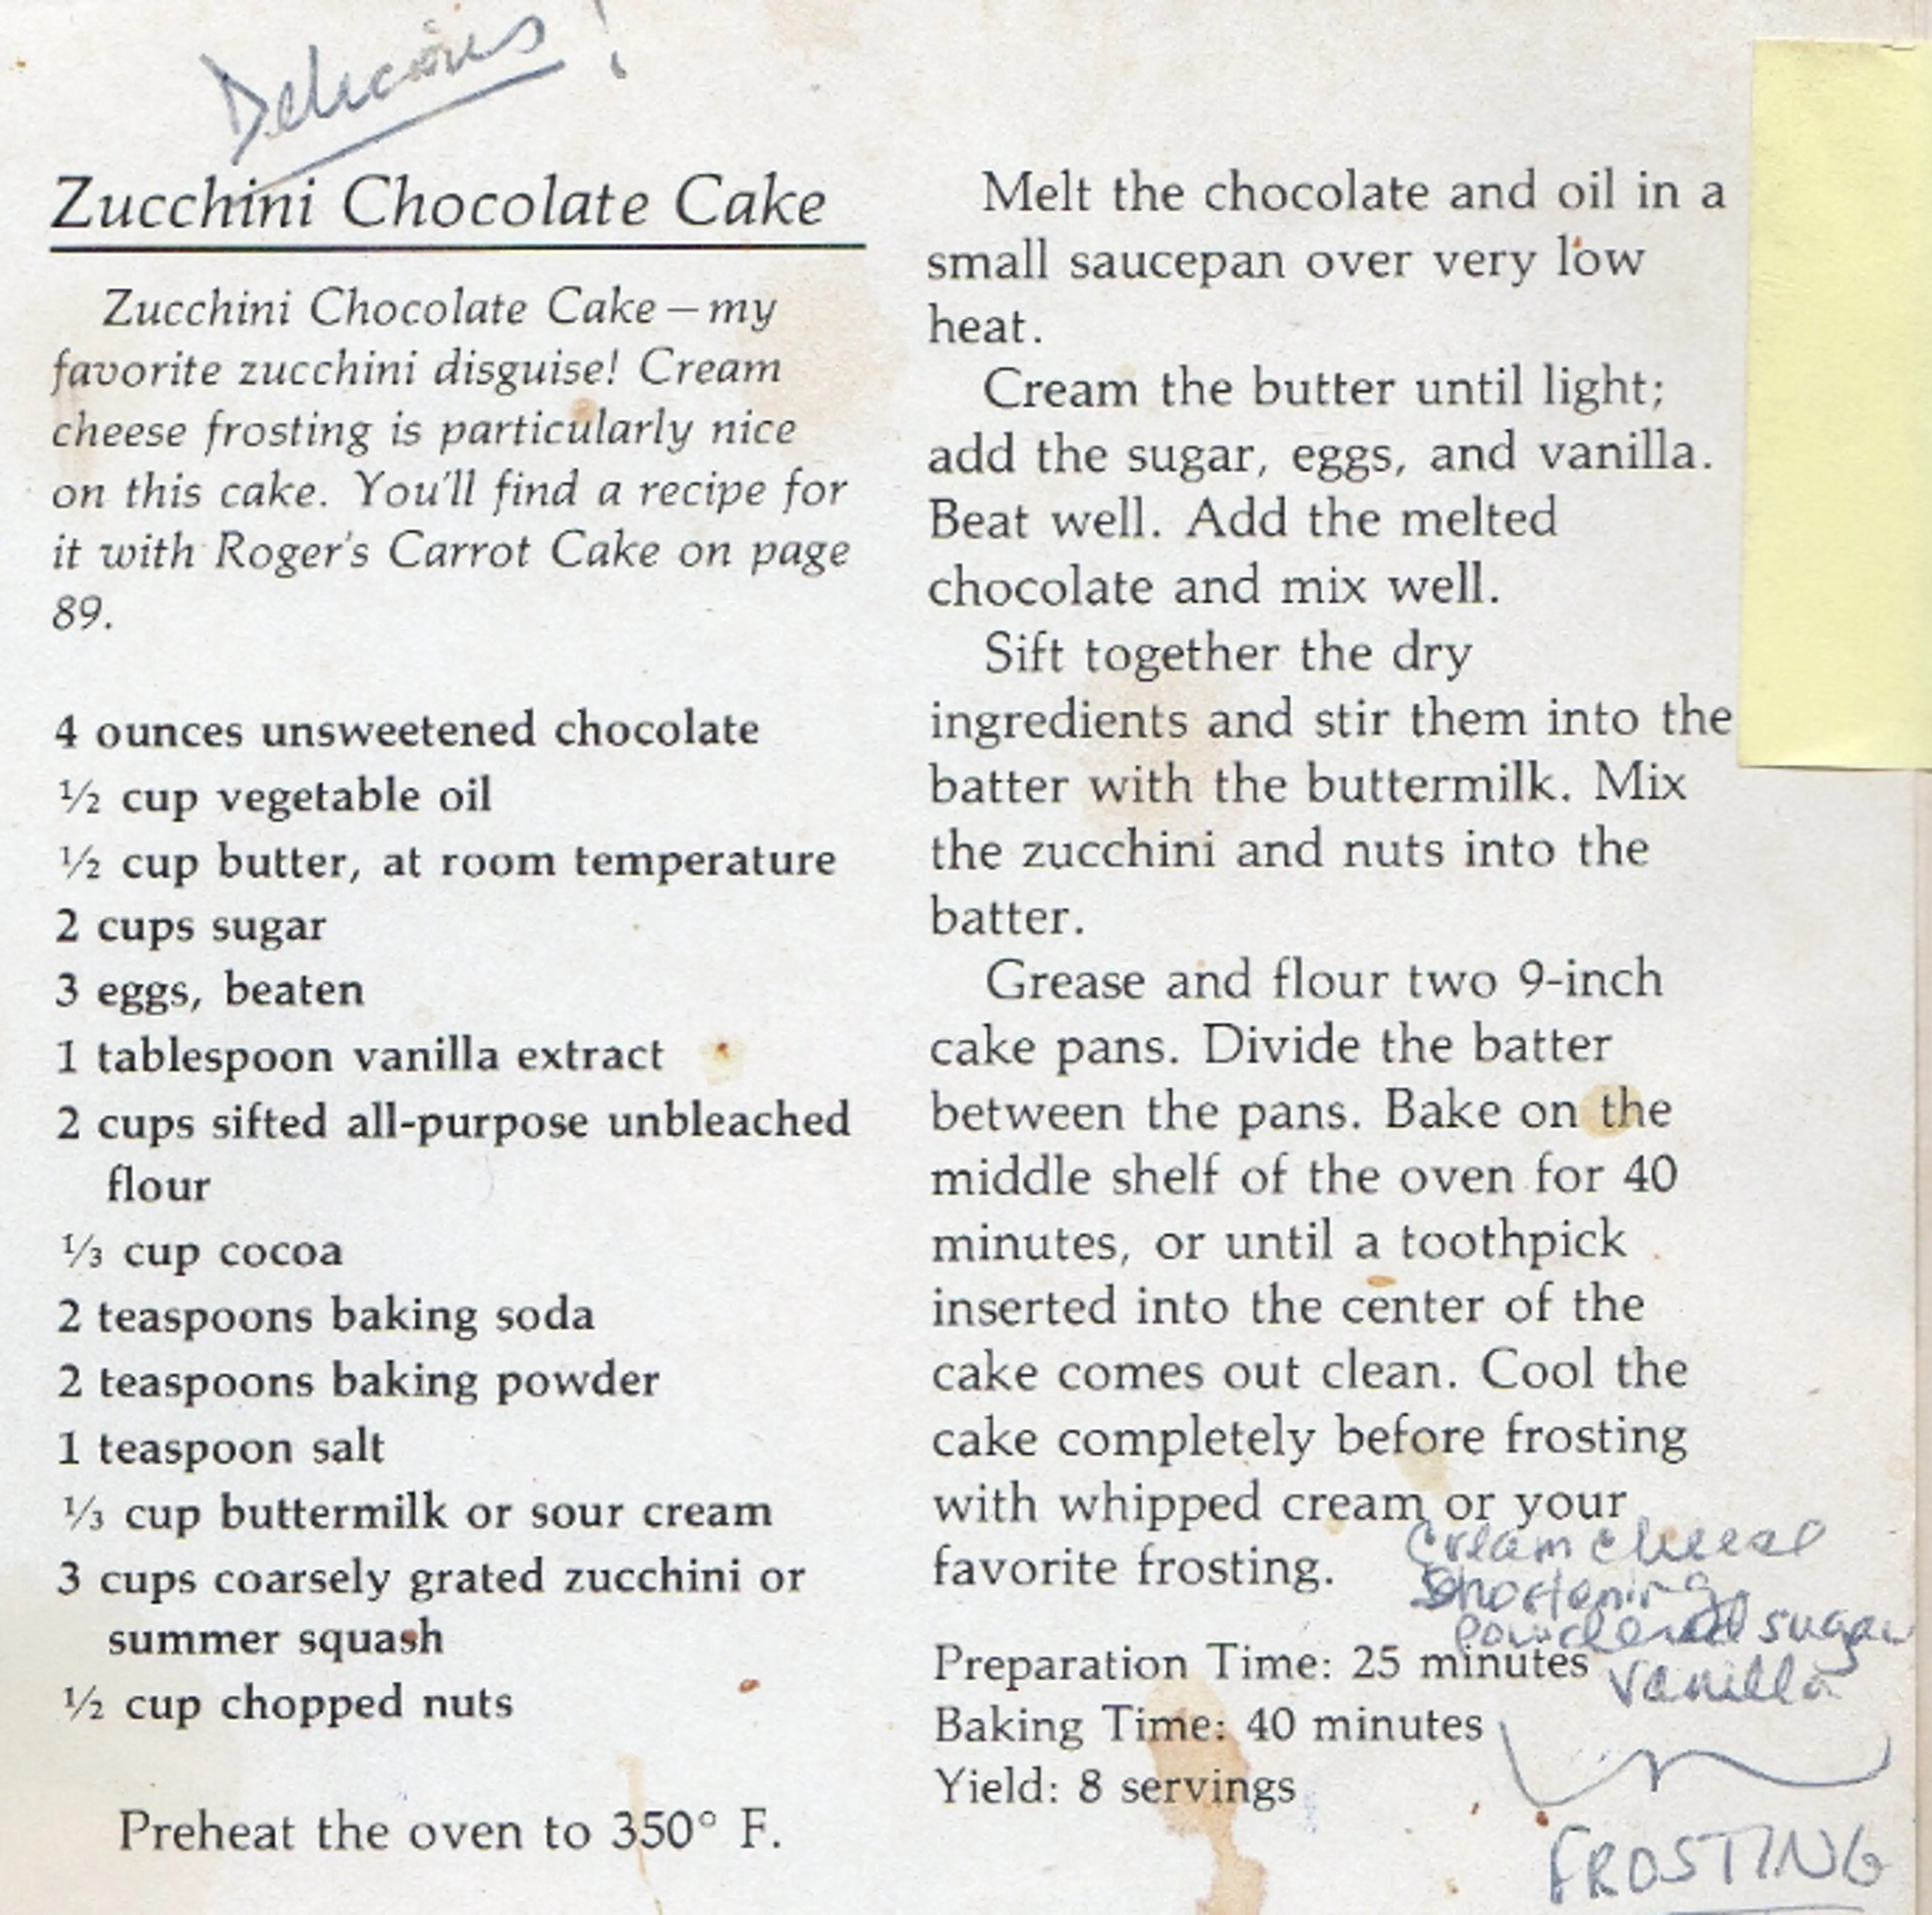 Delicious!
Zucchini Chocolate Cake
Zucchini Chocolate Cake – my
favorite zucchini disguise! Cream
cheese frosting is particularly nice
on this cake. You'll find a recipe for
it with Roger's Carrot Cake on page
89.
4 ounces unsweetened chocolate
½ cup vegetable oil
½ cup butter, at room temperature
2 cups sugar
3 eggs, beaten
1 tablespoon vanilla extract
2 cups sifted all-purpose unbleached
flour
⅓ cup cocoa
2 teaspoons baking soda
2 teaspoons baking powder
1 teaspoon salt
⅓ cup buttermilk or sour cream
3 cups coarsely grated zucchini or
summer squash
½ cup chopped nuts
Preheat the oven to 350° F.
Melt the chocolate and oil in a
small saucepan over very low
heat.
Cream the butter until light;
add the sugar, eggs, and vanilla.
Beat well. Add the melted
chocolate and mix well.
Sift together the dry
ingredients and stir them into the
batter with the buttermilk. Mix
the zucchini and nuts into the
batter.
Grease and flour two 9-inch
cake pans. Divide the batter
between the pans. Bake on the
middle shelf of the oven for 40
minutes, or until a toothpick
inserted into the center of the
cake comes out clean. Cool the
cake completely before frosting
with whipped cream or your
favorite frosting.
Preparation Time: 25 minutes
Baking Time: 40 minutes
Yield: 8 servings
cream cheese
shortening
powdered sugar
vanilla
FROSTING